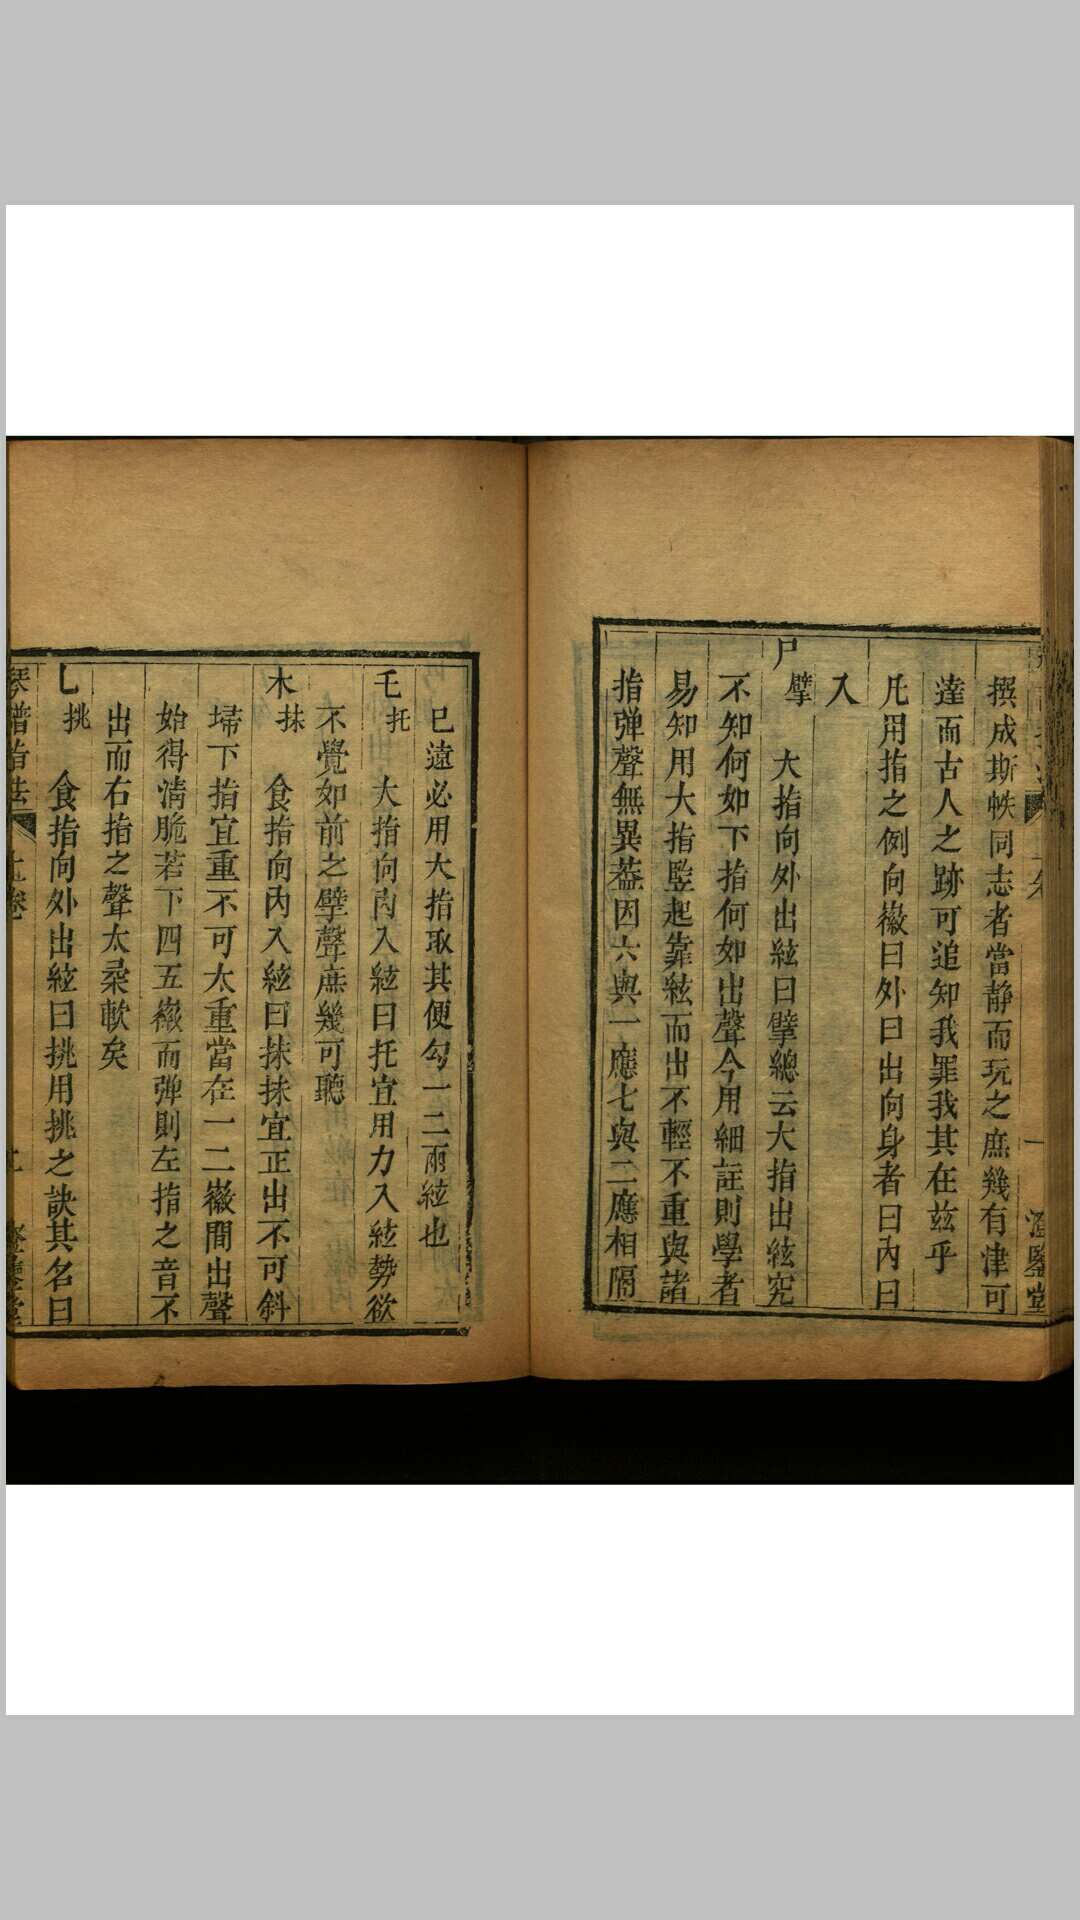 撰成斯帙同志者當静而玩之庶幾有津可
達而古人之跡可追知我罪我其在茲乎
凡用指之例向徽曰外曰出向身者曰內曰
入
尸擘 大指向外出絃曰擘總云大指出絃究
不知何如下指何如出聲今用細註則學者
易知用大指竪起靠絃而出不輕不重與諸
指弹聲無異葢因六與一應七與二應相隔
已遠必用大指取其便勾一二兩絃也
乇托 大指向內入絃曰托宜用力入絃勢欲
不覺如前之擘聲庶幾可聽
木抹 食指向內入絃曰抹抹宜正出不可斜
埽下指宜重不可太重當在一二徽間出聲
始得清脆若下四五徽而弹則左指之音不
出而右指之聲太桑軟矣
乚挑 食指向外出絃曰挑用挑之訣其名曰
琴譜指法 上卷 澄鑒堂